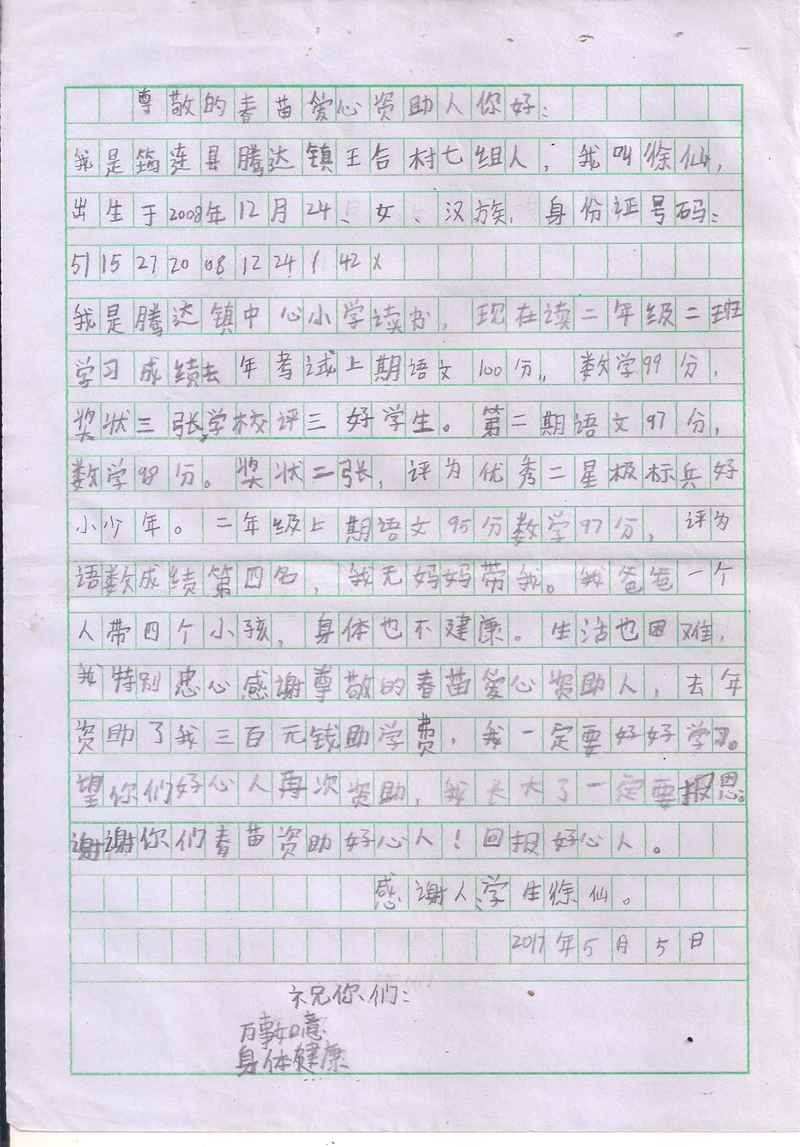 尊敬的春苗爱心资助人你好:
我是筠连县腾达镇王合村七组人,我叫徐仙,
出生于2008年12月24、女、汉族,身份证号码:
51 15 27 20 08 12 24 1 42 x
我是腾达镇中心小学读书,现在读二年级二班
学习成绩去年考试上期语文100分,数学99分,
奖状三张,学校评三好学生。第二期语文97分,
数学98分。奖状二张,评为优秀二星极标兵好
小少年。二年级上期语文95分数学97分,评为
语数成绩第四名,我无妈妈带我。我爸爸一个
人带四个小孩,身体也不建康。生活也困难,
我特别忠心感谢尊敬的春苗爱心资助人,去年
资助了我三百元钱助学费,我一定要好好学习。
望你们好心人再次资助,我长大了一定要报恩。
谢谢你们春苗资助好心人!回报好心人。
感谢人、学生徐仙。
2017年5月5日
祝你们:
万事如意
身体健康